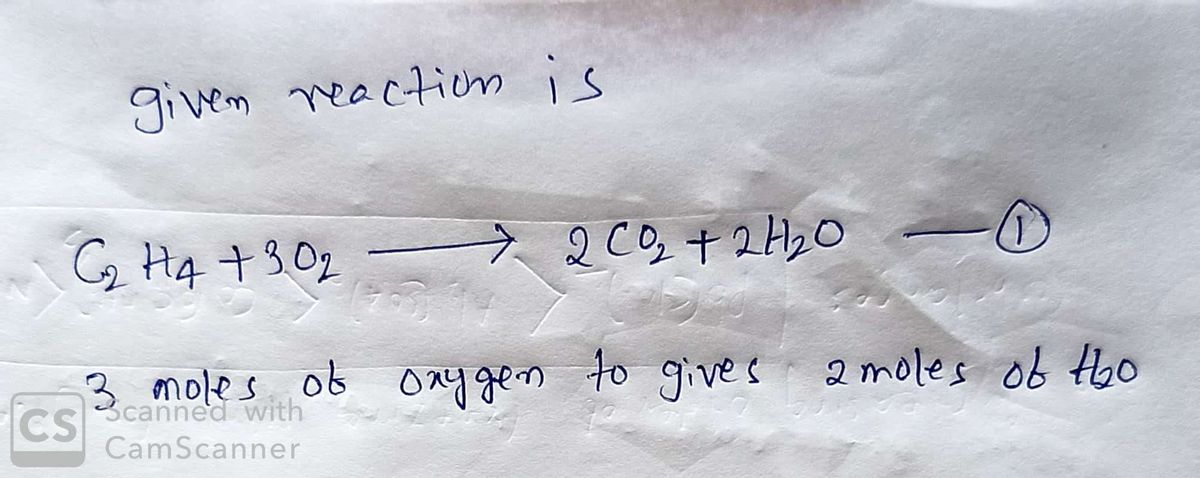 given reaction is
C₂H₄ + 3O₂ ⟶ 2CO₂ + 2H₂O —①
3 moles of oxygen to gives 2 moles of H₂O
CS Scanned with
CamScanner